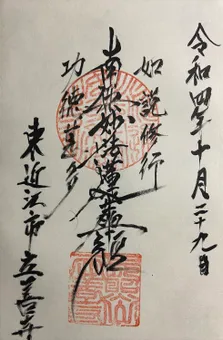 令和四年十月二十九日
如説修行
南無妙法蓮華経
功徳甚多
東近江市